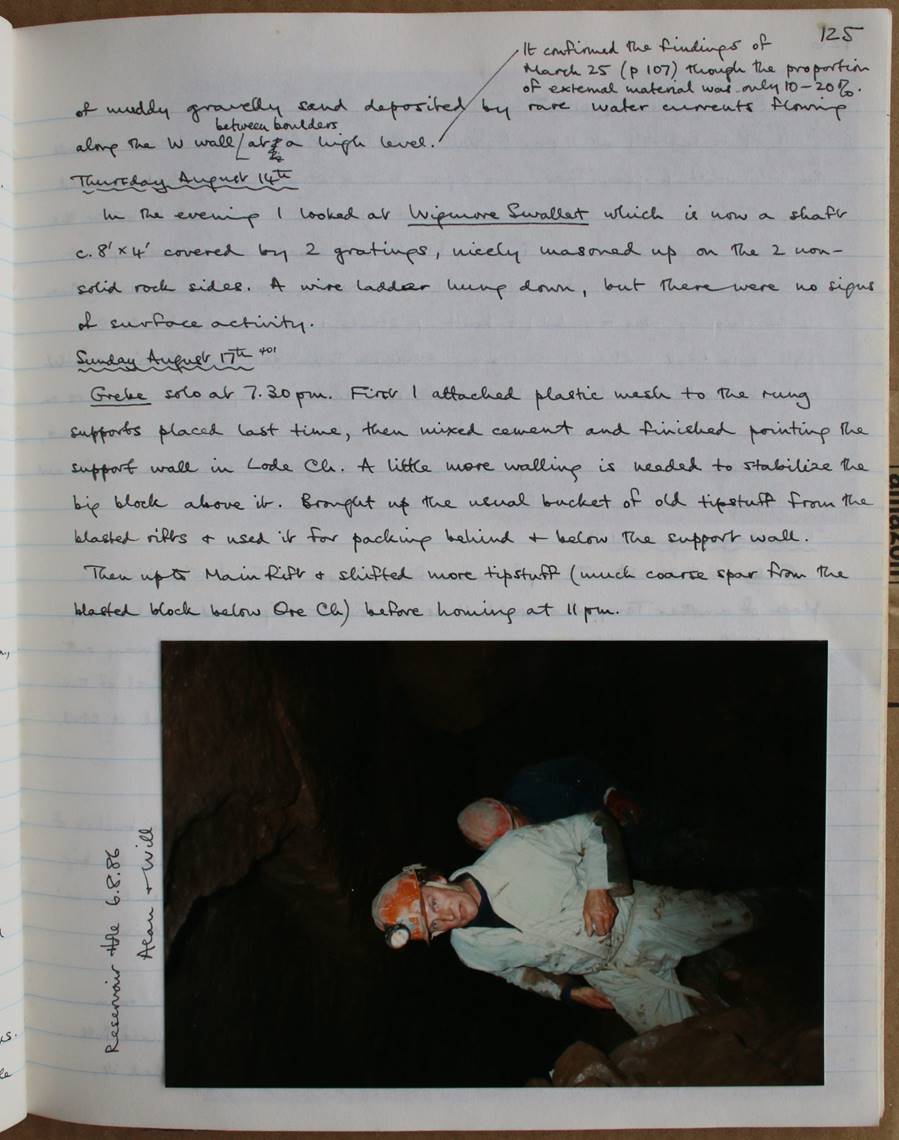 125
It confirmed the findings of
March 25 (p 107) though the proportion
of external material was only 10-20%.
of muddy gravelly sand deposited by rare water currents flowing
between boulders
along the W wall at a high level.
Thursday August 14th
In the evening I looked at Wigmore Swallet which is now a shaft
c. 8' x 4' covered by 2 gratings, nicely masoned up on the 2 non-
solid rock sides. A wire ladder hung down, but there were no signs
of surface activity.
Sunday August 17th 401
Grebe solo at 7.30 pm. First I attached plastic mesh to the rung
supports placed last time, then mixed cement and finished pointing the
support wall in Lode Ch. A little more walling is needed to stabilize the
big block above it. Brought up the usual bucket of old tipstuff from the
blasted rifts + used it for packing behind + below the support wall.
Then up to Main Rift + shifted more tipstuff (much coarse spar from the
blasted block below Ore Ch) before homing at 11 pm.
Reservoir Hole 6.8.86
Alan + Will
amazon